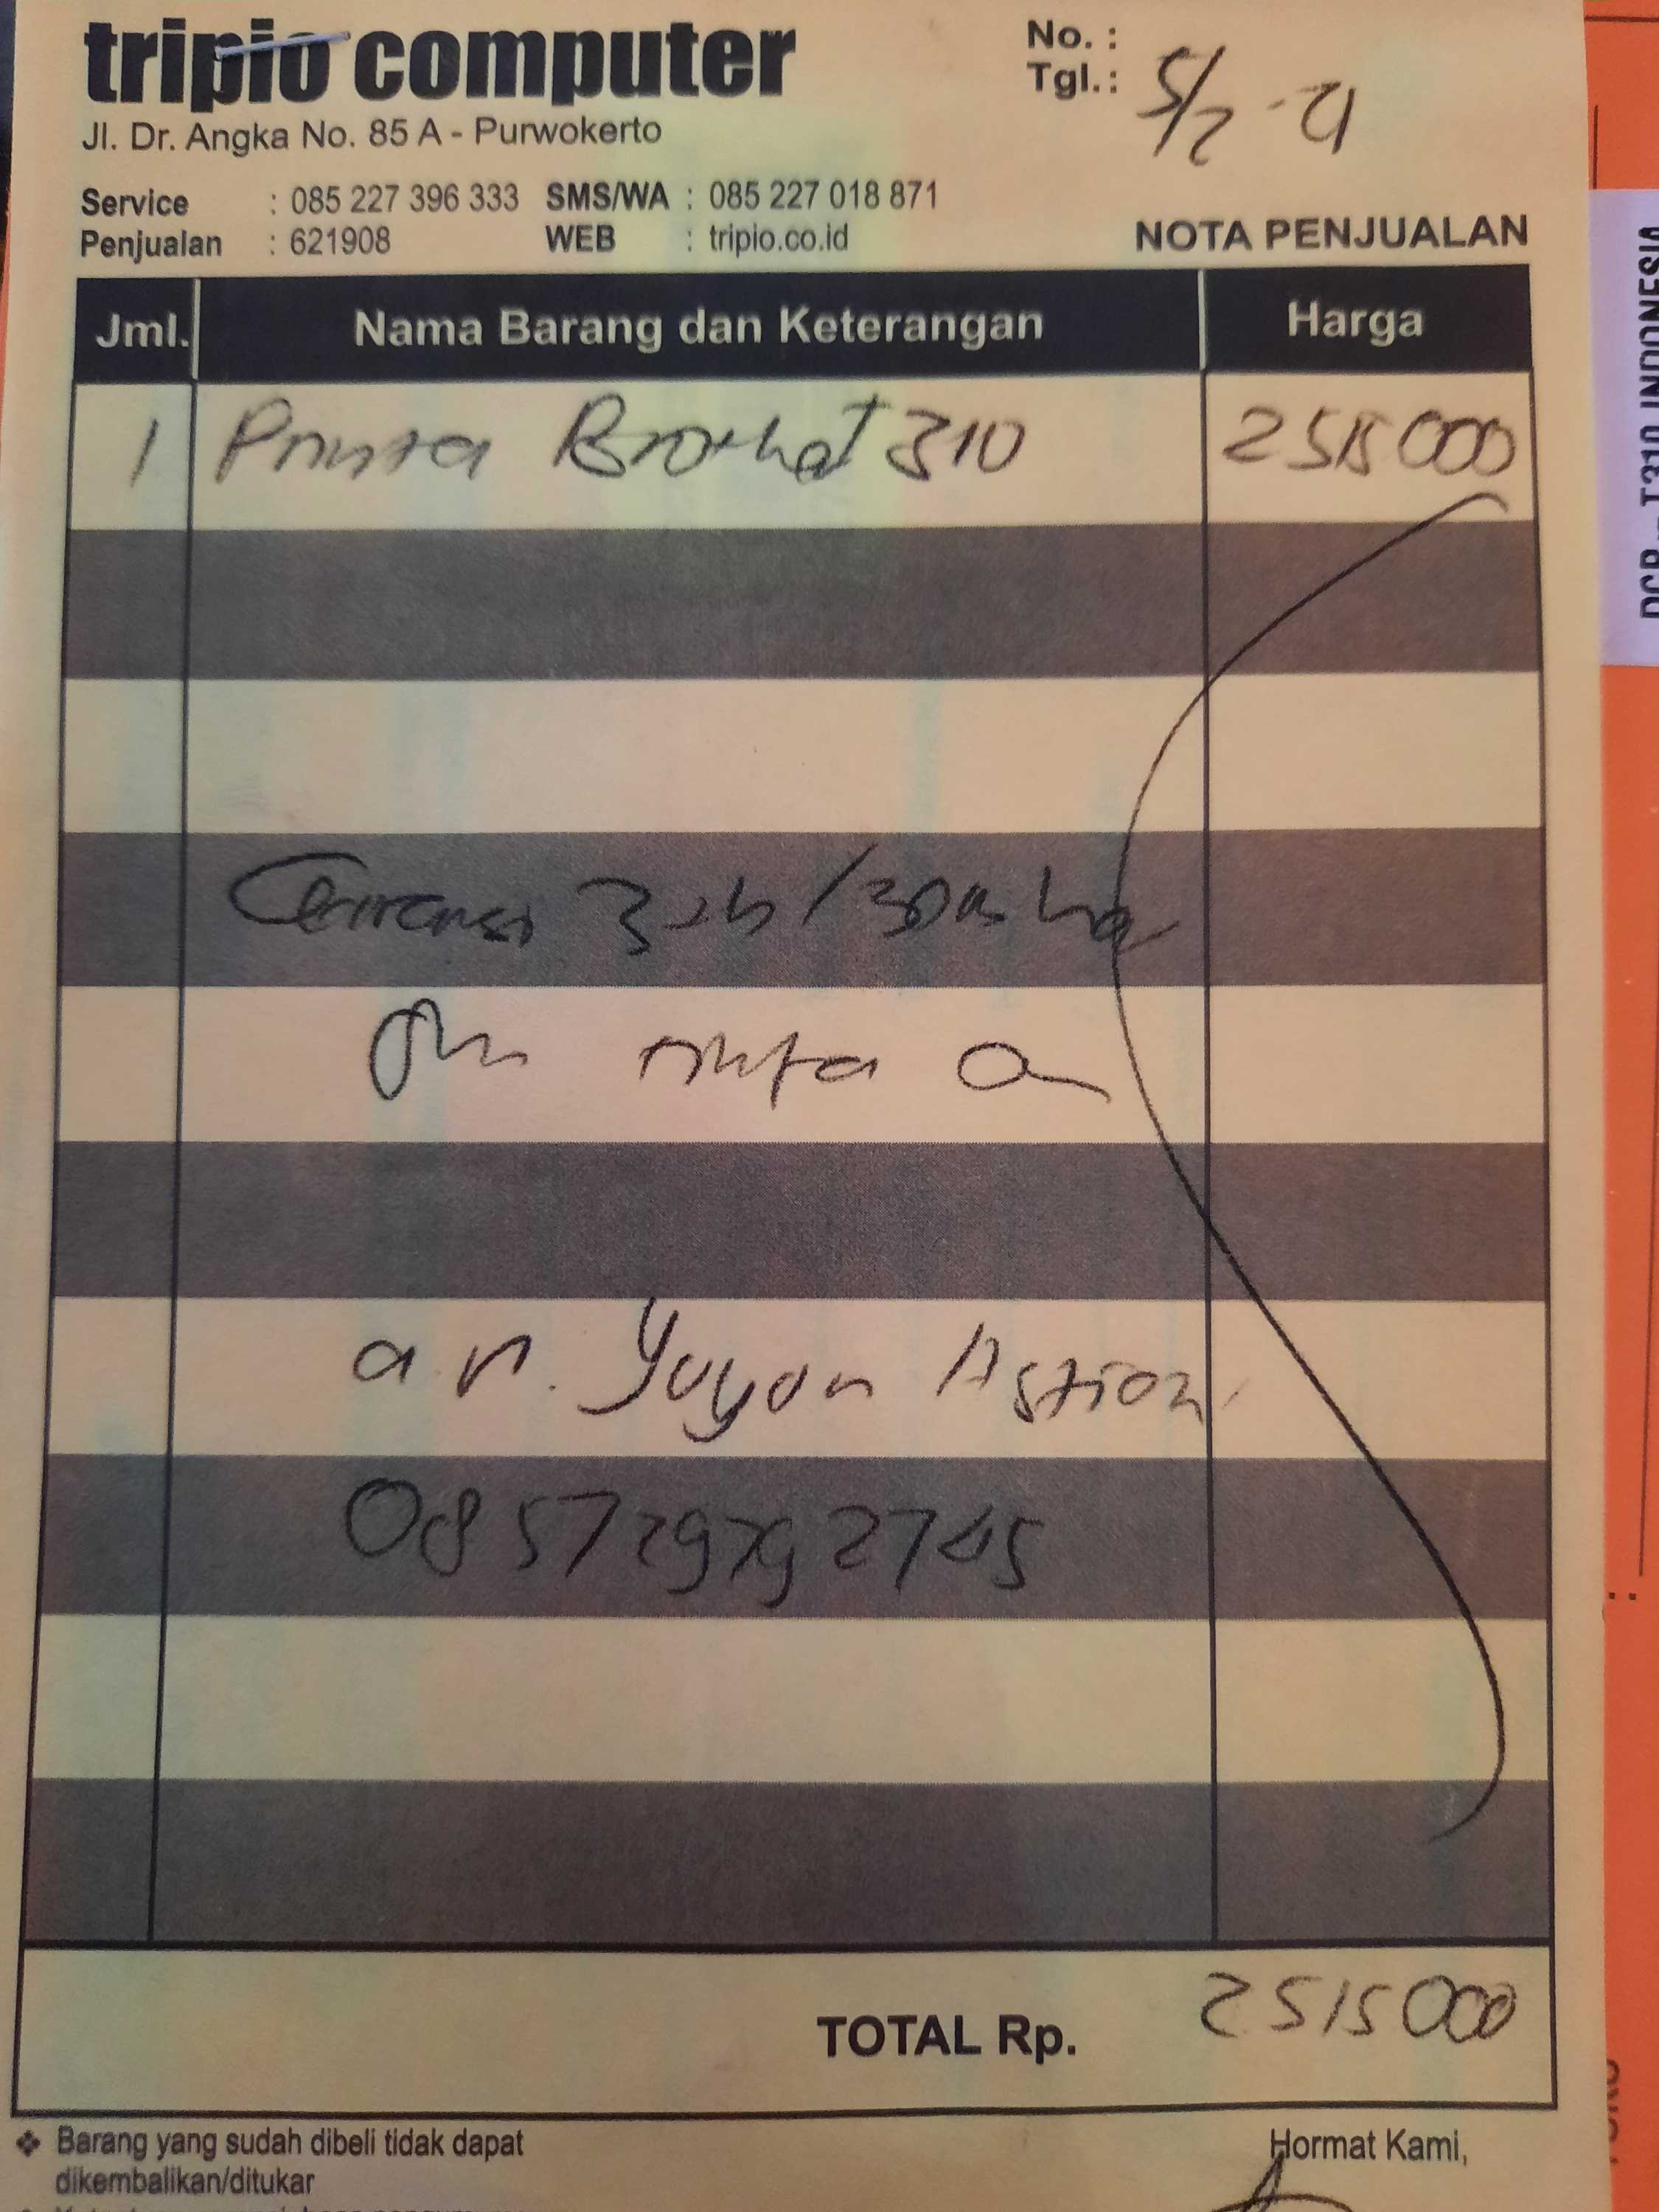 tripio computer
Jl. Dr. Angka No. 85 A - Purwokerto
Service : 085 227 396 333 SMS/WA : 085 227 018 871
Penjualan : 621908 WEB : tripio.co.id
No. :
Tgl. : 5/7-21
NOTA PENJUALAN
Jml. Nama Barang dan Keterangan Harga
1 Printer Brother T 310 2515000
Garansi 3 th /
tinta
a.n. Yuyun
TOTAL Rp. 2515000
Barang yang sudah dibeli tidak dapat
dikembalikan/ditukar
Hormat Kami,
INDONESIA